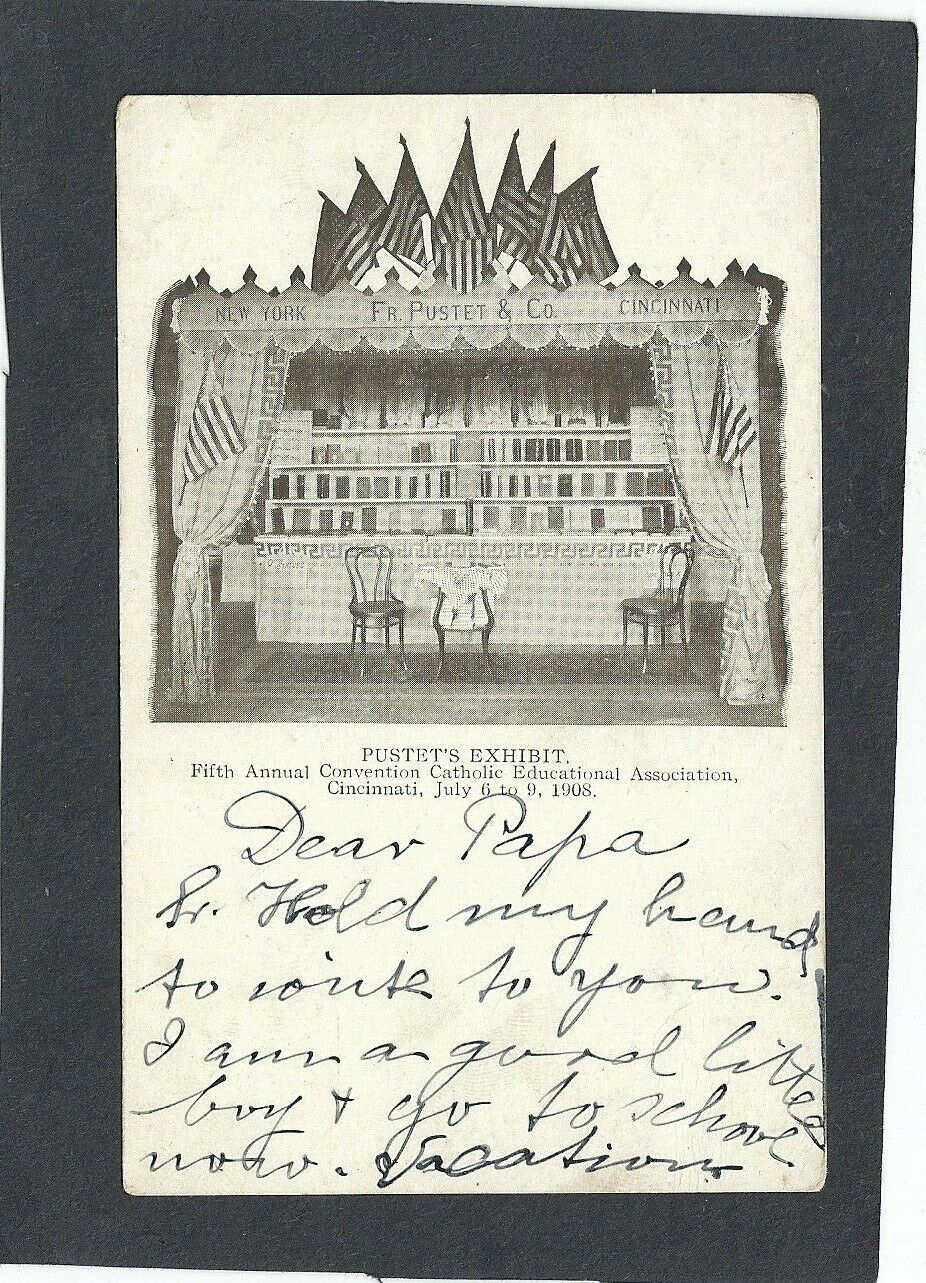 NEW YORK FR. PUSTET & CO. CINCINNATI
PUSTET'S EXHIBIT.
Fifth Annual Convention Catholic Educational Association,
Cincinnati, July 6 to 9, 1908.
Dear Papa
Sr. Hold my hand
to write to you.
I am a good little
boy & go to school
now. Vacation